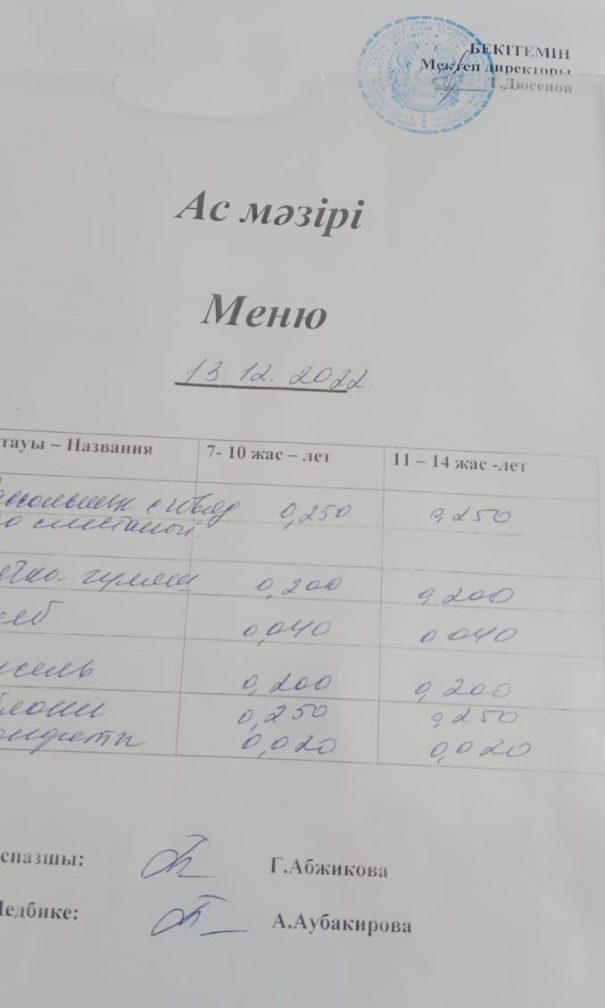 БЕКІТЕМІН
Мектеп директоры
Т.Дюсенов
Ас мәзірі
Меню
13.12.2022
тауы – Названия 7- 10 жас – лет 11 – 14 жас -лет
0,250 0,250
со сметаной.
гуляш 0,200 0,200
леб 0,040 0,040
исель 0,200 0,200
блоки 0,250 0,250
онфети 0,020 0,020
спазшы: Г.Абжикова
Медбике: А.Аубакирова